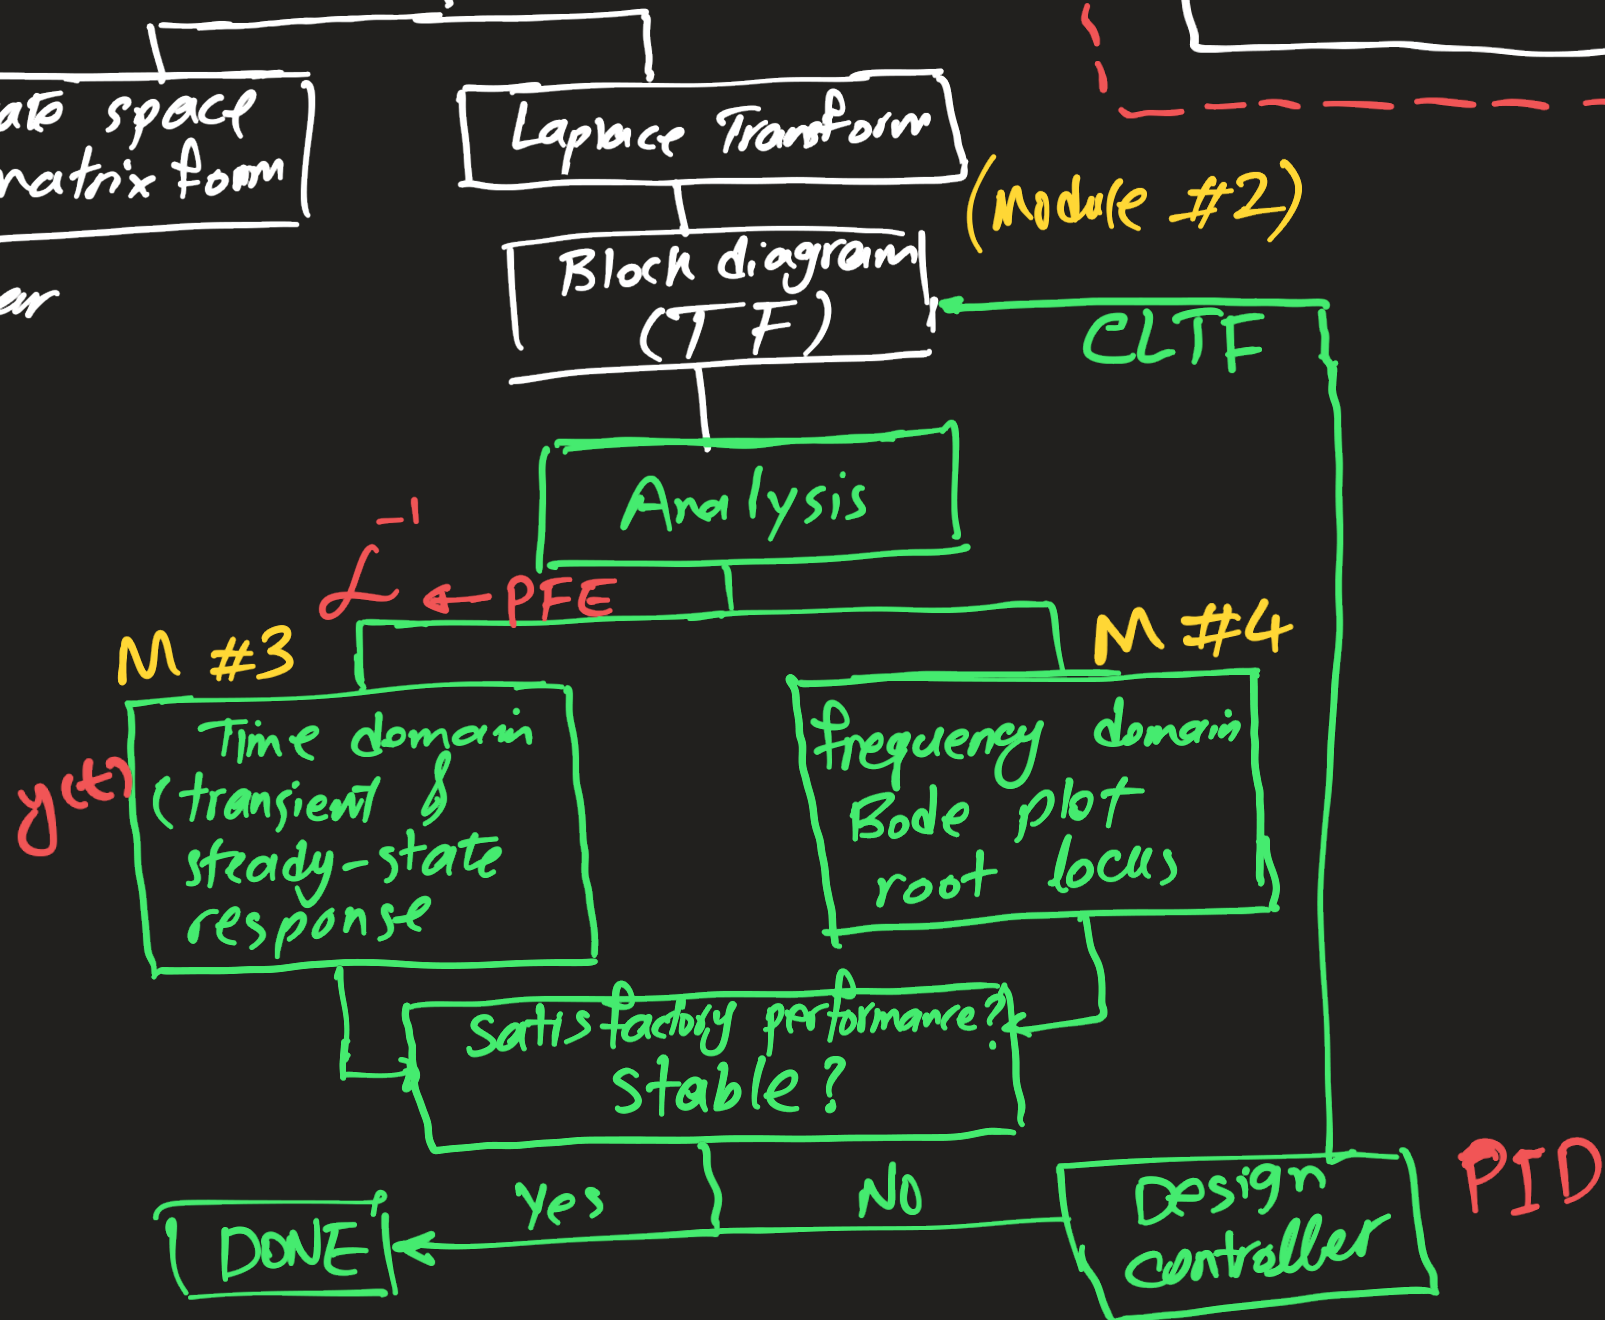 space
matrix form
Laplace Transform
(Module #2)
Block diagram
(TF)
CLTF
Analysis
ℒ⁻¹ ← PFE
M #3
M #4
y(t)
Time domain
(transient &
steady-state
response
frequency domain
Bode plot
root locus
Satisfactory performance?
Stable?
Yes
NO
DONE
Design
controller
PID